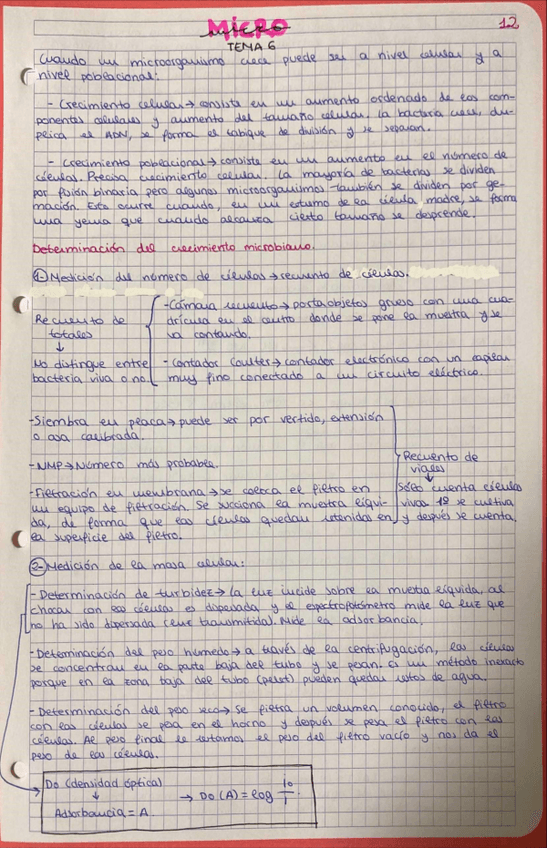 MICRO
micro
12
TEMA 6
Cuando un microorganismo crece puede ser a nivel celular y a
nivel poblacional:
- Crecimiento celular → consiste en un aumento ordenado de los com-
ponentes celulares y aumento del tamaño celular. La bacteria crece, du-
plica el ADN, se forma el tabique de división y se separan.
- Crecimiento poblacional → consiste en un aumento en el número de
células. Precisa crecimiento celular. La mayoría de bacterias se dividen
por fisión binaria pero algunos microorganismos también se dividen por ge-
mación. Esto ocurre cuando, en un extremo de la célula madre, se forma
una yema que cuando alcanza cierto tamaño se desprende.
Determinación del crecimiento microbiano.
① Medición del número de células → recuento de células.
Recuento de
totales
↓
No distingue entre
bacteria viva o no
- Cámara recuento → portaobjetos grueso con una cua-
drícula en el centro donde se pone la muestra y se
va contando.
- Contador Coulter → contador electrónico con un capilar
muy fino conectado a un circuito eléctrico.
- Siembra en placa → puede ser por vertido, extensión
o asa calibrada.
- NMP → Número más probable.
- Filtración en membrana → se coloca el filtro en
un equipo de filtración. Se succiona la muestra líqui-
da, de forma que las células quedan retenidas en
la superficie del filtro.
Recuento de
viables
↓
Sólo cuenta células
vivas. 1º se cultiva
y después se cuenta.
②- Medición de la masa celular:
- Determinación de turbidez → la luz incide sobre la muestra líquida, al
chocar con las células es dispersada y el espectrofotómetro mide la luz que
no ha sido dispersada (luz transmitida). Mide la adsorbancia.
- Determinación del peso húmedo → a través de la centrifugación, las células
se concentran en la parte baja del tubo y se pesan. Es un método inexacto
porque en la zona baja del tubo (pelet) pueden quedar restos de agua.
- Determinación del peso seco → Se filtra un volumen conocido, el filtro
con las células se pesa en el horno y después se pesa el filtro con las
células. Al peso final le restamos el peso del filtro vacío y nos da el
peso de las células.
DO (densidad óptica)
↓
Adsorbancia = A
→ DO (A) = log Io/I.